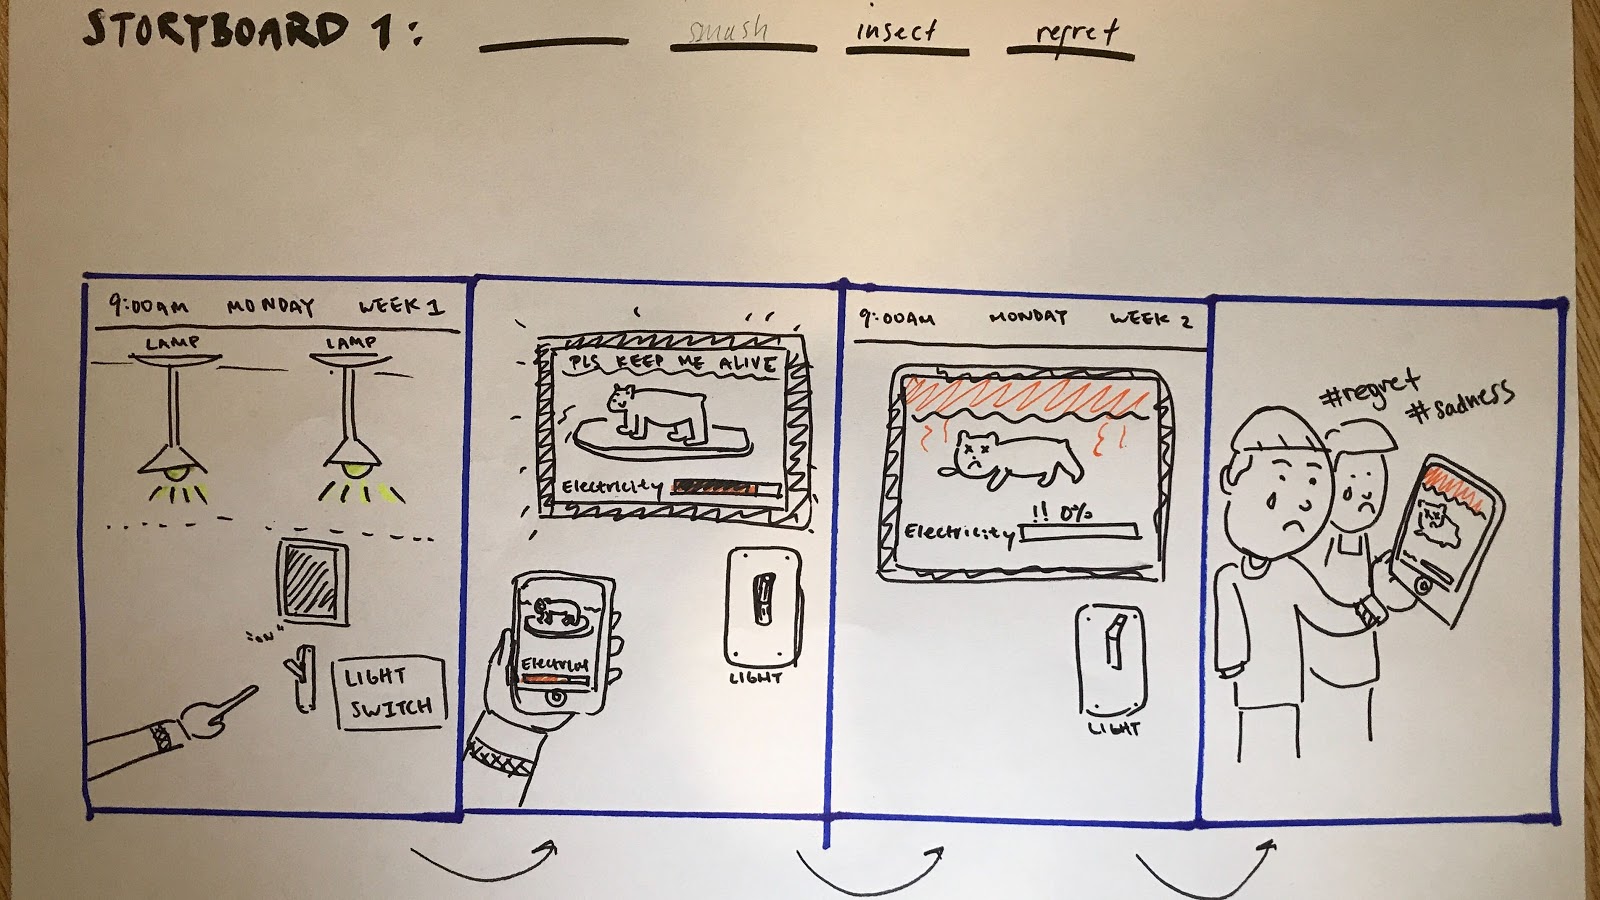 STORYBOARD 1:
smash insect regret
9:00AM MONDAY WEEK 1
LAMP LAMP
"ON"
LIGHT
SWITCH
PLS KEEP ME ALIVE
Electricity
LIGHT
9:00AM MONDAY WEEK 2
!! 0%
Electricity
LIGHT
#regret
#sadness